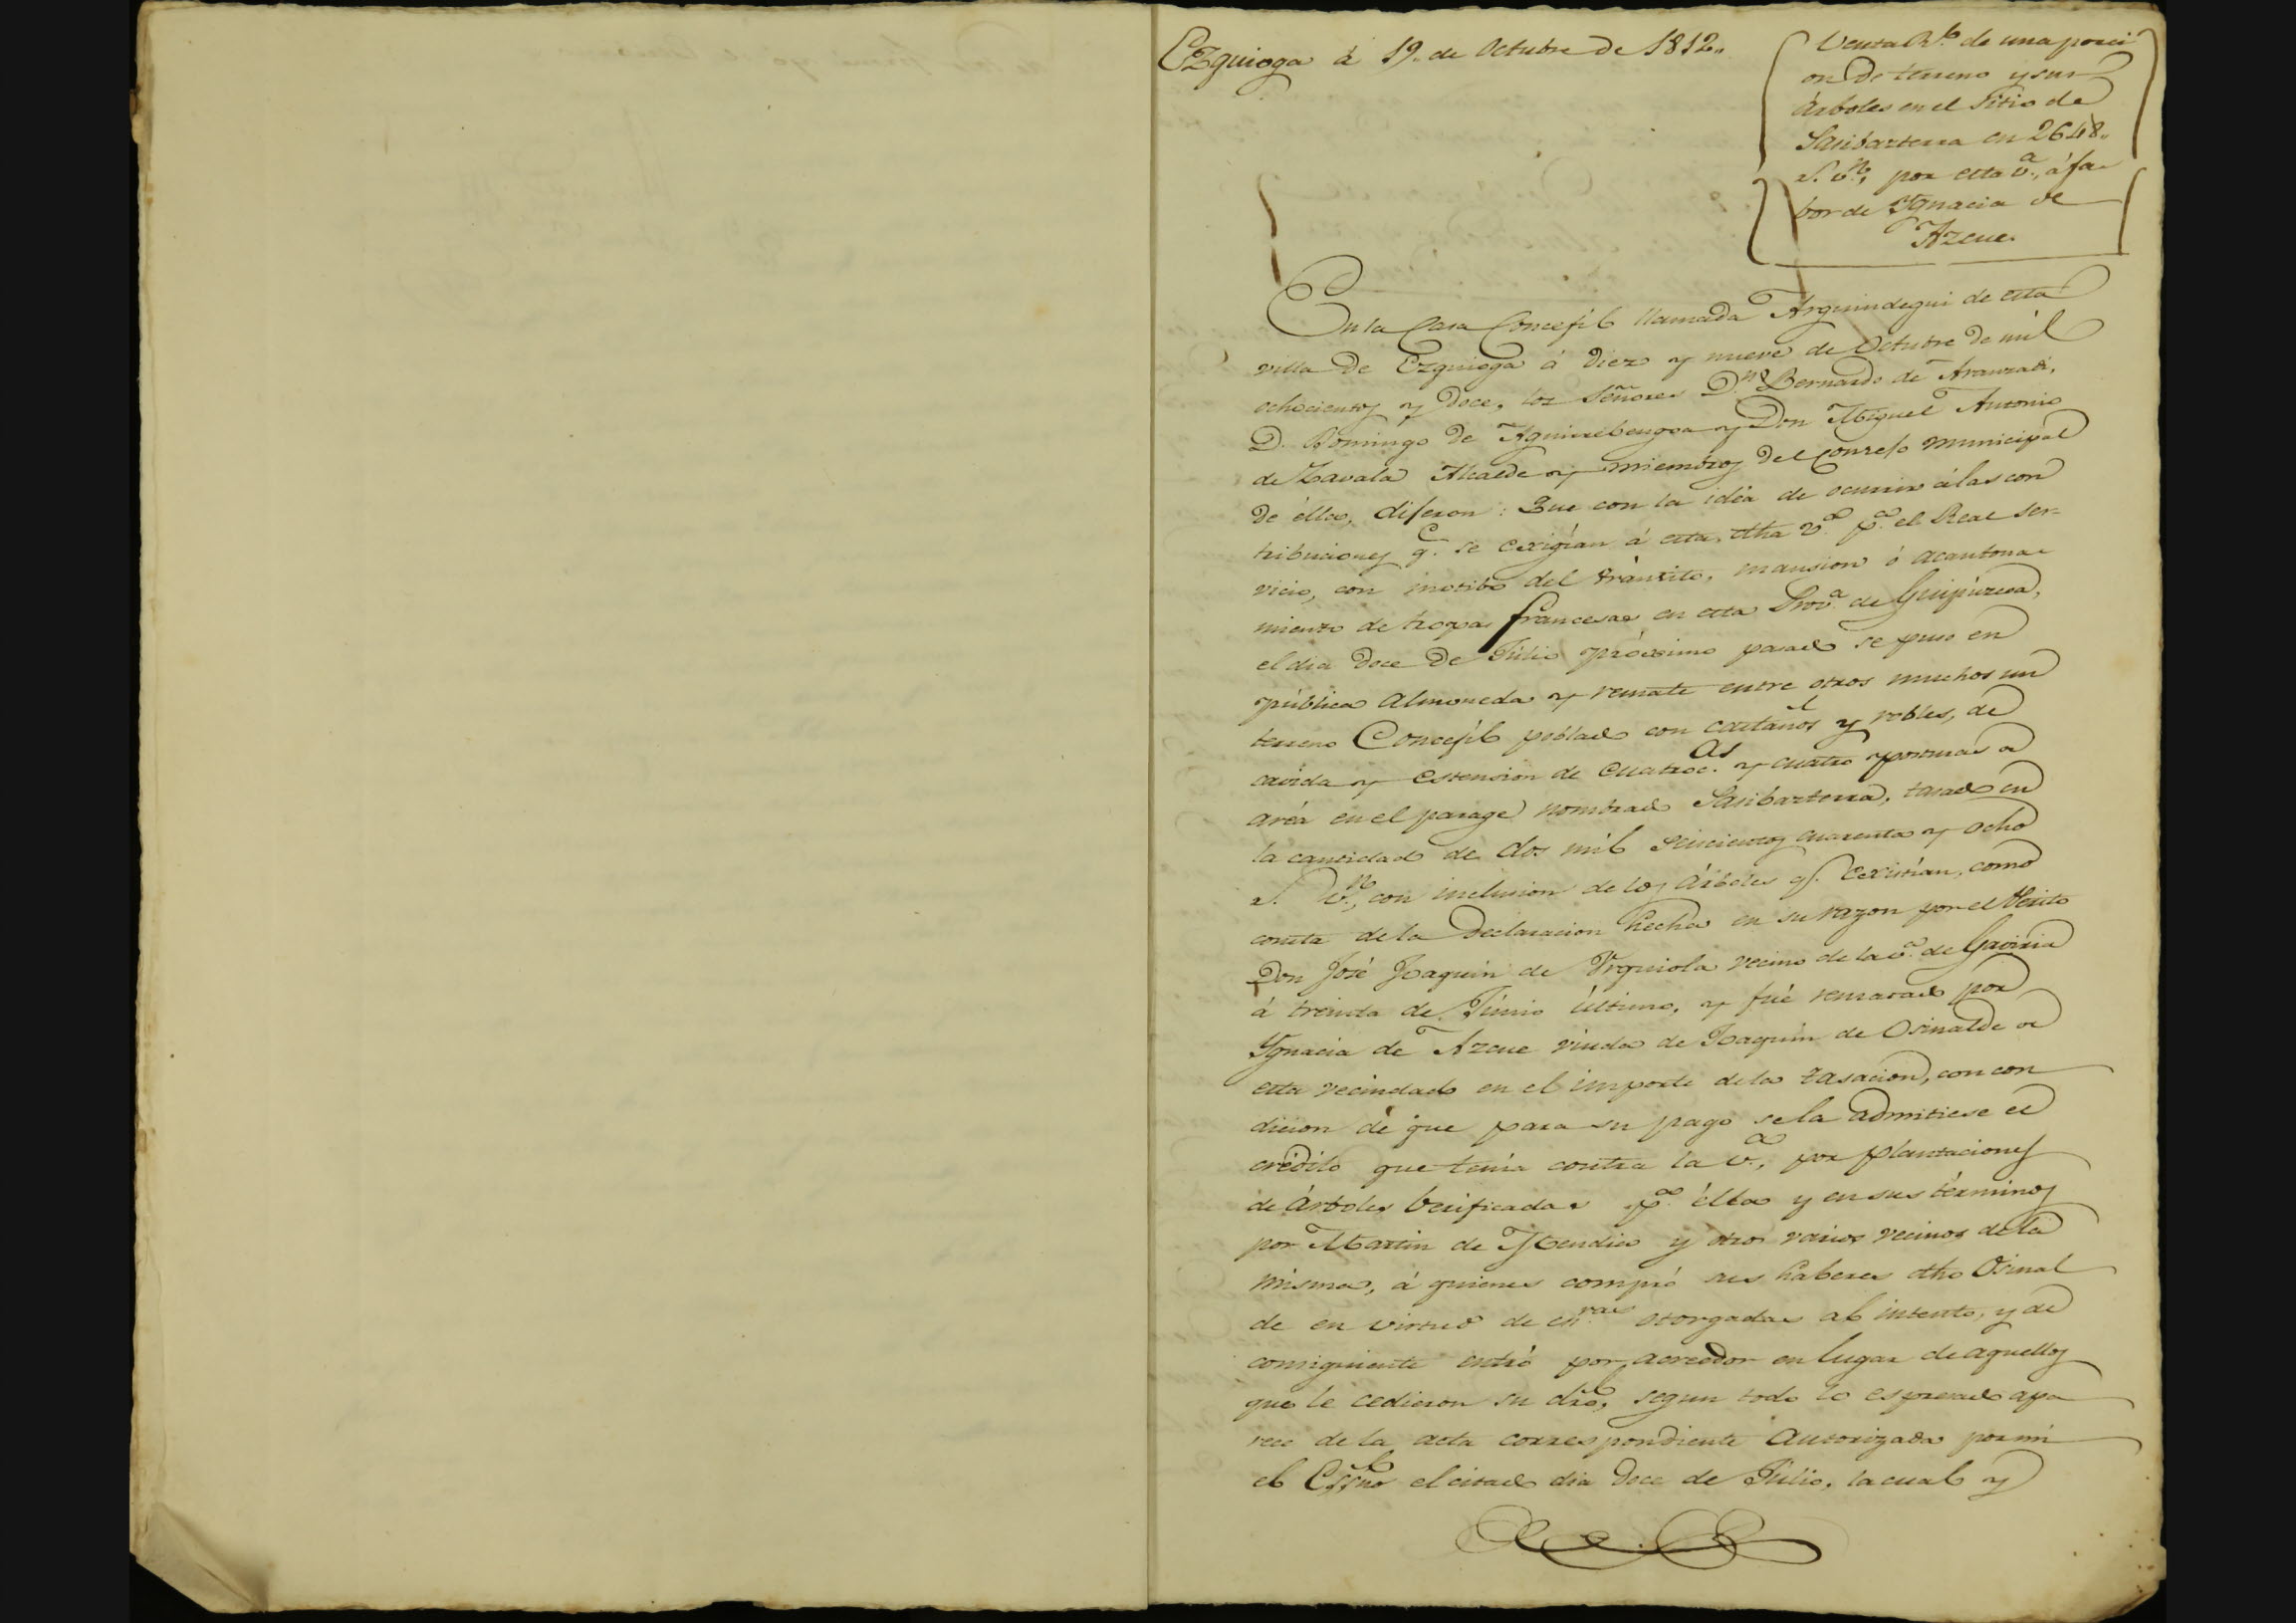 Ezquioga á 19,, de Octubre de 1812,,
Venta Rl. de una porci
on de terreno y sus
Árboles en el Sitio de
Sasibarterra en 2648,,
r.s v.n, por esta v.a, á fa
bor de Ygnacia de
Azcue.
En la Casa Concejil llamada Arguindegui de esta
villa de Ezquioga á diez y nueve de Octubre de mil
ochocientos y doce, los Señores D.n Bernardo de Aranzadi,
D. Domingo de Aguirrebengoa y Don Miguel Antonio
de Zavala Alcalde y miembros del Consejo Municipal
de élla, dijeron: Que con la idéa de ocurrir á las con
tribuciones q.e se exigían á esta dha v.a p.a el Real ser=
vicio, con motibo del tránsito, mansion ó acantona
miento de tropas francesas en esta Prov.a de Guipúzcoa,
el dia doce de Júlio próximo pasado se puso en
pública almoneda y remate entre otros muchos un
terreno Concejil poblado con castaños y robles, de
cavida y estension de cuatroc.os y cuatro posturas de
aréa en el parage nombrado Sasibarterra, tasado en
la cantidad de dos mil seiscientos cuarenta y ocho
r.s v.n, con inclusion de los Árboles q.e Existían, como
consta de la declaracion hecha en su razon por el Périto
Don José Joaquin de Urquiola vecino de la v.a de Gaviria
á treinta de Júnio último, y fué rematado por
Ygnacia de Azcue viuda de Joaquin de Osinalde de
esta vecindad en el importe de la tasacion, con con
dicion de que para su pago se la admitiese el
crédito que tenía contra la v.a, por plantaciones
de árboles berificadas p.a élla y en sus términos
por Martin de Mendia y otros varios vecinos de la
misma, á quienes compró sus haberes dho Osinal
de en virtud de es.ras otorgadas al intento, y de
consiguiente entró por acreedor en lugar de aquellos
que le cedieron su dro, segun todo lo espresado apa
rece de la acta correspondiente autorizada por mi
el Essno el citado dia doce de Júlio, la cual y